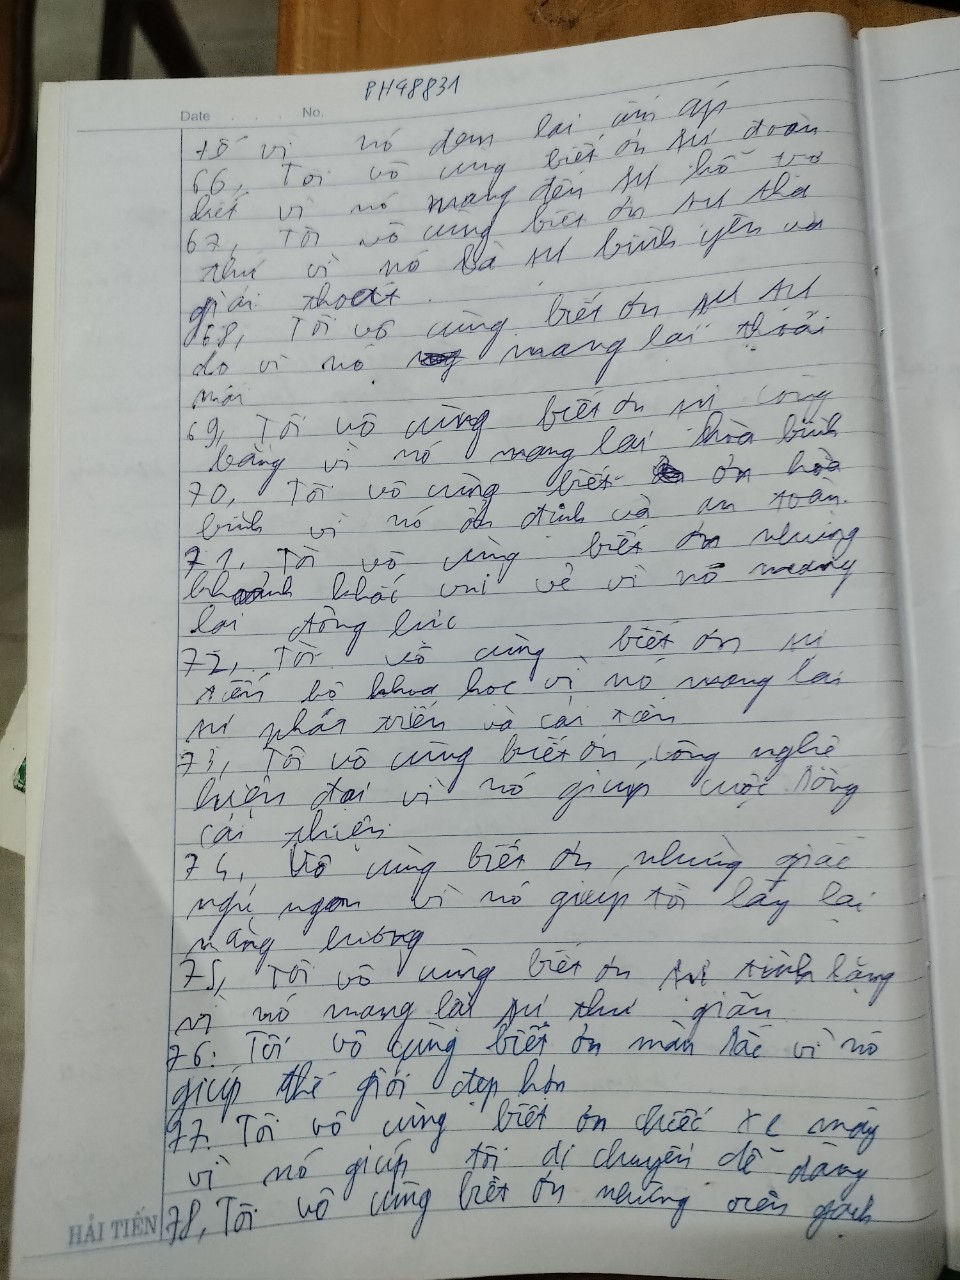 PH48831
Date . . . . No.
tế vì nó đem lại ấm áp
66, Tôi vô cùng biết ơn sự đoàn
kết vì nó mang đến sự hỗ trợ
67, Tôi vô cùng biết ơn sự tha
thứ vì nó là sự bình yên và
giải thoát.
68, Tôi vô cùng biết ơn sự tự
do vì nó mang lại thoải
mái
69, Tôi vô cùng biết ơn sự công
bằng vì nó mang lại hòa bình
70, Tôi vô cùng biết ơn hòa
bình vì nó ổn định và an toàn.
71, Tôi vô cùng biết ơn những
khoảnh khắc vui vẻ vì nó mang
lại động lực
72, Tôi vô cùng biết ơn sự
tiến bộ khoa học vì nó mang lại
sự phát triển và cải tiến
73, Tôi vô cùng biết ơn công nghệ
hiện đại vì nó giúp cuộc sống
cải thiện
74, Vô cùng biết ơn những giấc
ngủ ngon vì nó giúp tôi lấy lại
năng lượng
75, Tôi vô cùng biết ơn sự tĩnh lặng
vì nó mang lại sự thư giãn
76. Tôi vô cùng biết ơn màu sắc vì nó
giúp thế giới đẹp hơn
77. Tôi vô cùng biết ơn chiếc xe máy
vì nó giúp tôi di chuyển dễ dàng
78, Tôi vô cùng biết ơn những viên gạch
HẢI TIẾN